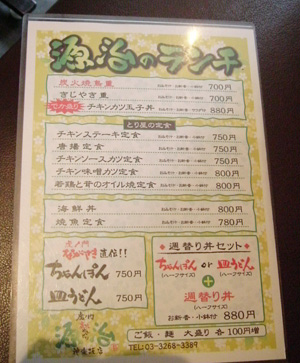 源治のランチ
炭火焼鳥重 700円
きじやき重 700円
チキンカツ玉子丼 880円
とり屋の定食
チキンステーキ定食 750円
唐揚定食 750円
チキンソースカツ定食 750円
チキン味噌カツ定食 800円
若鶏と茸のオイル焼定食 800円
海鮮丼 800円
焼魚定食 780円
直伝!!
ちゃんぽん 750円
皿うどん 750円
週替り丼セット
ちゃんぽん or 皿うどん
(ハーフサイズ) (ハーフサイズ)
+
週替り丼
(ハーフサイズ)
お新香・小鉢付 880円
ご飯・麺 大盛り 各100円増
TEL: 03-3268-3989
源治